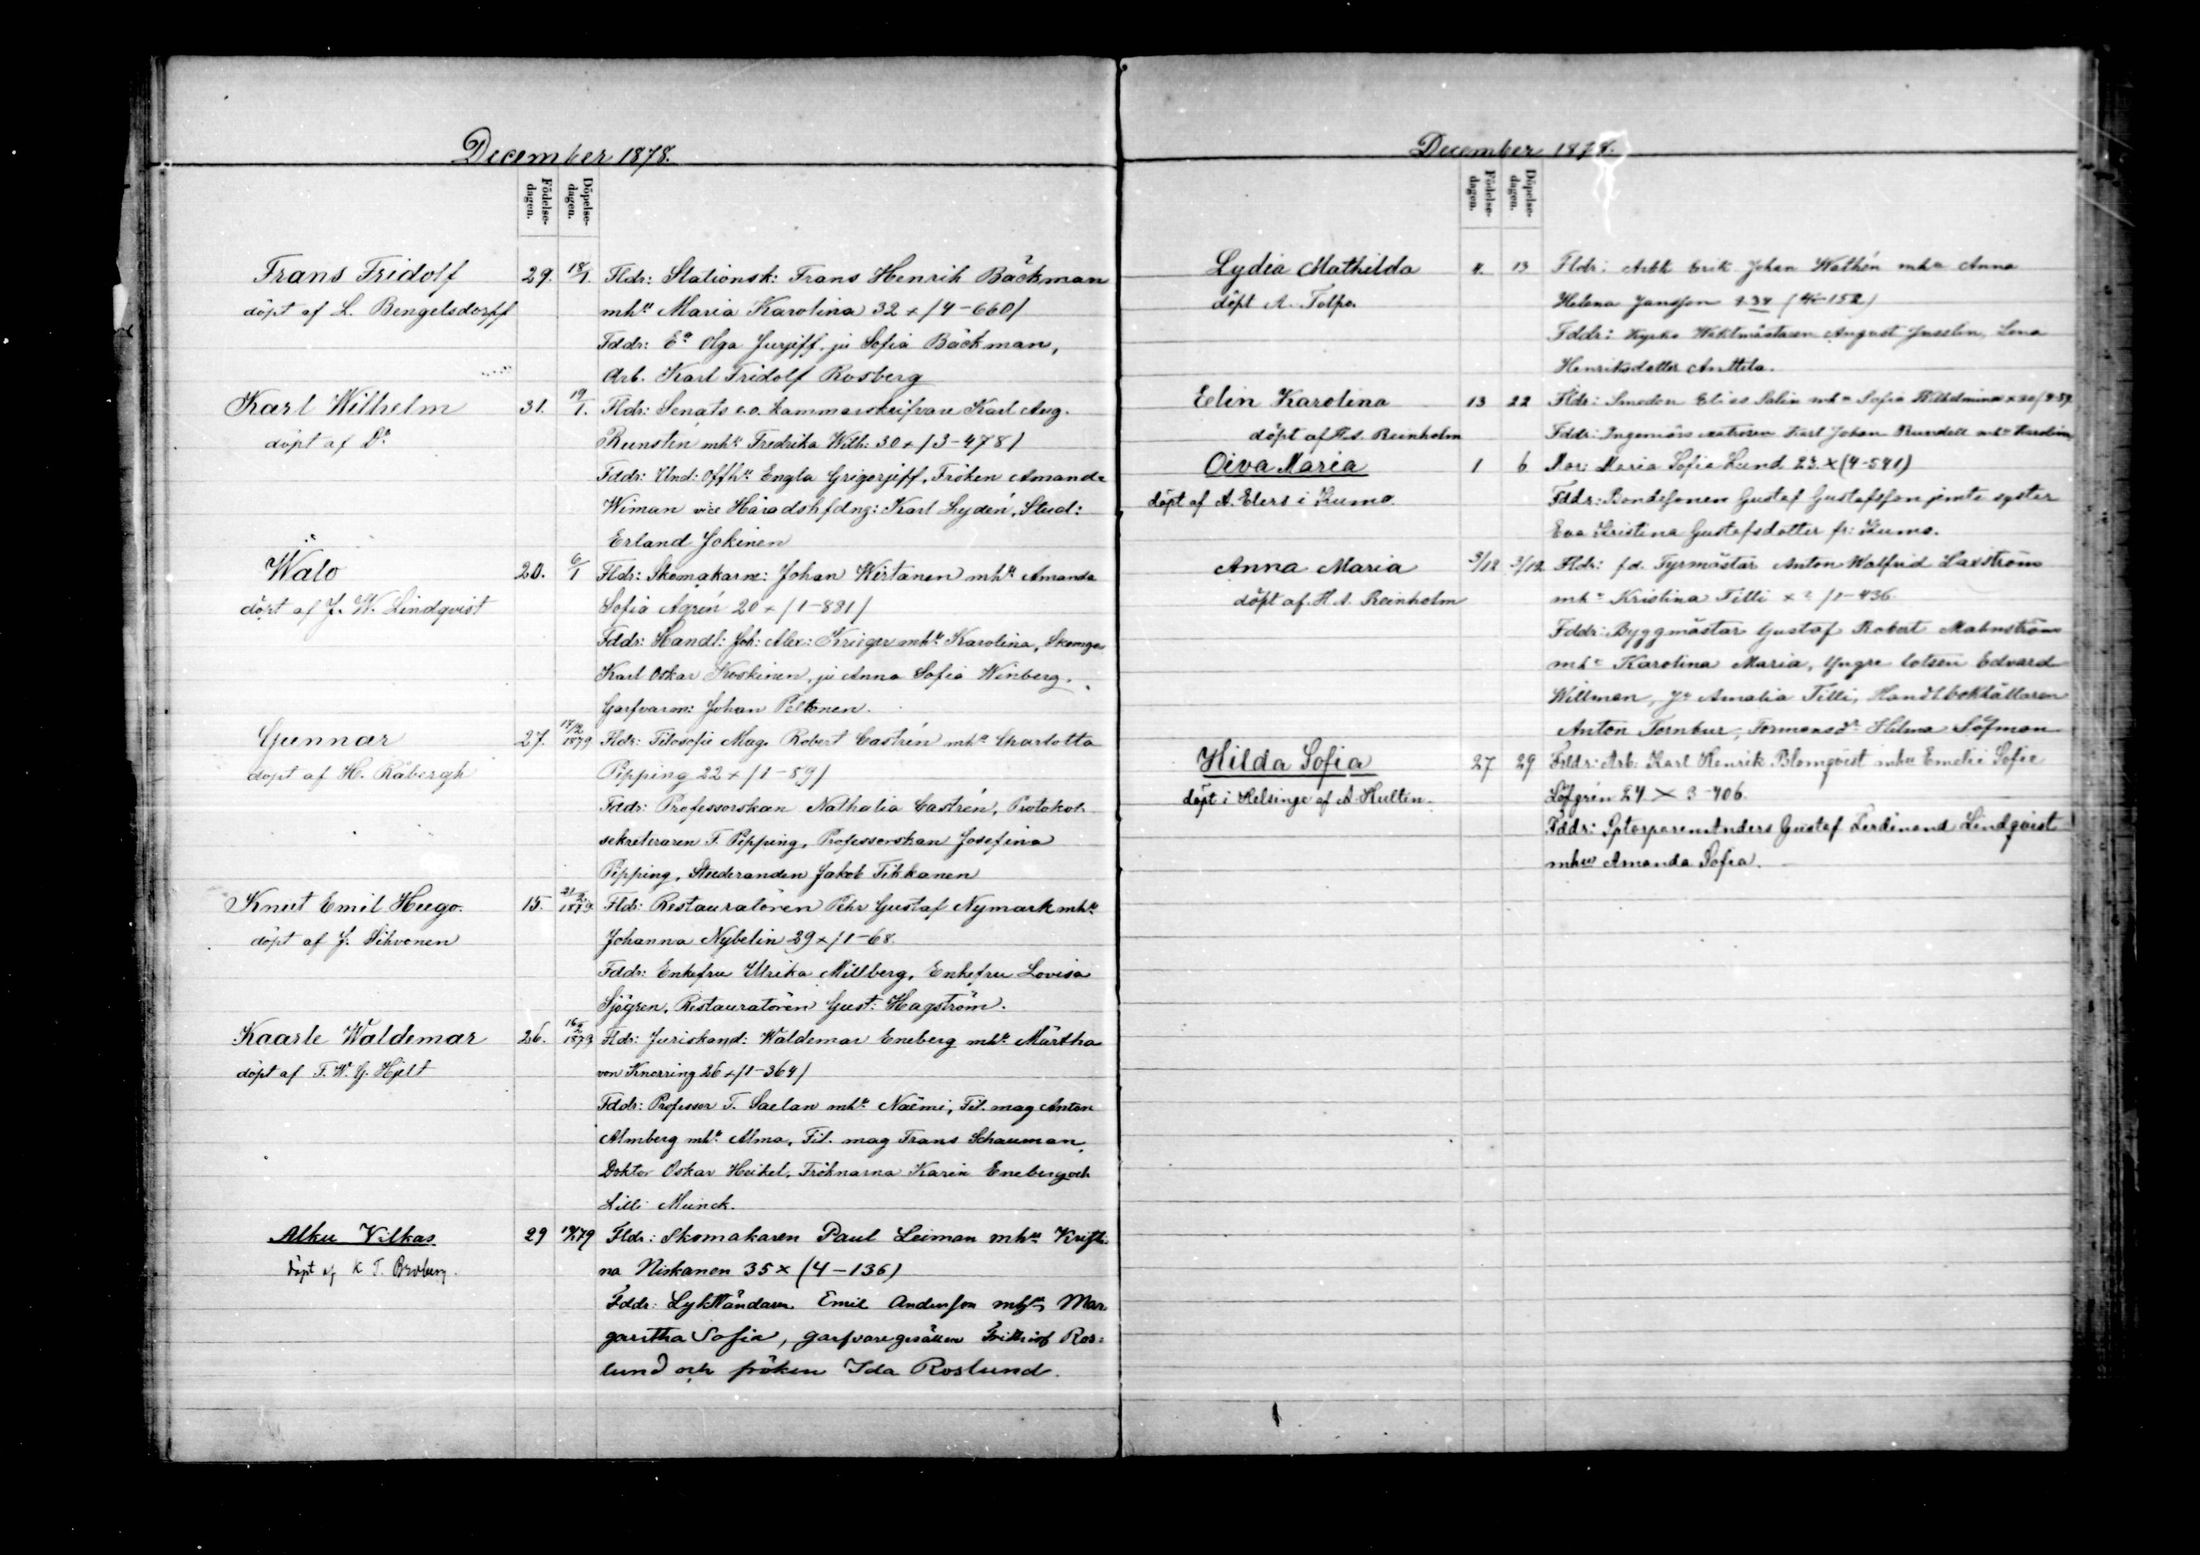 December 1878.
Födelse-
dagen.
Döpelse-
dagen.
Frans Fridolf 29. 18/1. Fldr: Stationsk: Frans Henrik Bäckman
döpt af L. Bengelsdorff mha Maria Karolina 32 + /4-660/
Fddr: Ea Olga Jurjeff, ju Sofia Bäckman,
Arb. Karl Fridolf Rosberg
Karl Wilhelm 31. 19/1. Fldr: Senats e.o. kammarskrifvare Karl Aug.
döpt af Do Runsten mha Fredrika Wilh: 30 + /3-478/
Fddr: Und: Offha Engla Grigorjeff, Fröken Amanda
Wiman vice Häradshfdng: Karl Lydén, Stud:
Erland Jokinen
Walo 20. 6/1 Fldr: Skomakarne: Johan Wirtanen mha Amanda
döpt af J. W. Lindqvist Sofia Ågrén 20 + /1-881/
Fddr: Handl: Joh: Alex: Krüger mha Karolina, Skomge
Karl Oskar Koskinen, ju Anna Sofia Winberg,
Garfvarne: Johan Peltonen.
Gunnar 27. 17/2 1879 Fldr: Filosofie Mag. Robert Castrén mha Charlotta
döpt af H. Råbergh Pipping 22 + /1-59/
Fddr: Professorskan Nathalia Castrén, Protokol-
sekreteraren F. Pipping, Professorskan Josefina
Pipping, Studeranden Jakob Tikkanen
Knut Emil Hugo. 15. 21/2 1879 Fldr: Restauratören Pehr Gustaf Nymark mha
döpt af J. Sihvonen Johanna Nybelin 29 + /1-68.
Fddr: Enkefru Ulrika Millberg, Enkefru Lovisa
Sjögren, Restauratören Gust: Hagström.
Kaarle Waldemar 26. 16/2 1879 Fldr: Juriskand: Waldemar Eneberg mha Märtha
döpt af F. W. G. Hjelt von Knorring 26 + /1-364/
Fddr: Professor T. Saelan mha Naëmi, Fil. mag Anton
Almberg mha Alma, Fil. mag Frans Schauman,
Doktor Oskar Heikel, Fröknarna Karin Eneberg och
Lilli Munck.
Alku Vilkas 29 79 Fldr: Skomakaren Paul Leiman mha Kristi-
döpt af K T. Broberg. na Niskanen 35 x (4-136)
Fddr: Lykttändaren Emil Anderson mha Mar
garitha Sofia, garfvaregesällen Fridolf Ros:
lund och fröken Ida Roslund.
December 1878.
Födelse-
dagen.
Döpelse-
dagen.
Lydia Mathilda 4. 13 Fldr: Arbk Erik Johan Wathén mha Anna
döpt A. Tolpo. Helena Jansson + 34 (4-152)
Fddr: Kyrko Waktmästaren August Jusslin, Lena
Henriksdotter Anttila.
Elin Karolina 13 22 Fldr: Smeden Elias Salin mha Sofia Wilhelmina x 30 /
döpt af H.A. Reinholm Fddr: Ingeniörs matrosen Karl Johan Rundell mha Karolina
Oiva Maria 1 6 Mor: Maria Sofia Lund 23. x (4-541)
döpt af A. Elers i Kumo. Fddr: Bondesonen Gustaf Gustafsson jemte syster
Eva Kristina Gustafsdotter fr: Kumo.
Anna Maria 3/12 3/12 Fldr: f.d. Fyrmästar Anton Walfrid Laxström
döpt af H A. Reinholm mha Kristina Tilli x ? /1-436.
Fddr: Byggmästar Gustaf Robert Malmström
mha Karolina Maria, Yngre lotsen Edvard
Willman, Ja Amalia Tilli, Handl.bokhållaren
Anton Tornbur, Formansdr Hilma Löfman
Hilda Sofia 27 29 Fldr: Arb: Karl Henrik Blomqvist mhu Emelie Sofia
döpt i Helsinge af A. Hultin. Löfgrén 24. x 3-406.
Fddr: Sptorparen Anders Gustaf Ferdinand Lindqvist
mhu Amanda Sofia.